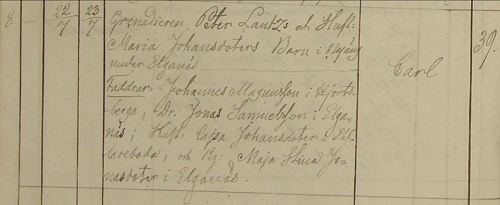 8 22/7 23/7 Grenadieren Peter Lantz's och Hust:
Maria Johansdoters Barn i Nyäng
under Elganäs
Faddrar: Johannes Magnusson i Hjorts-
berga, Dr. Jonas Samuelsson i Elga-
näs; Hust: Cajsa Johansdoter i
lareboda, och Pig: Maja Stina Jo-
nasdoter i Elganäs.
Carl
39.